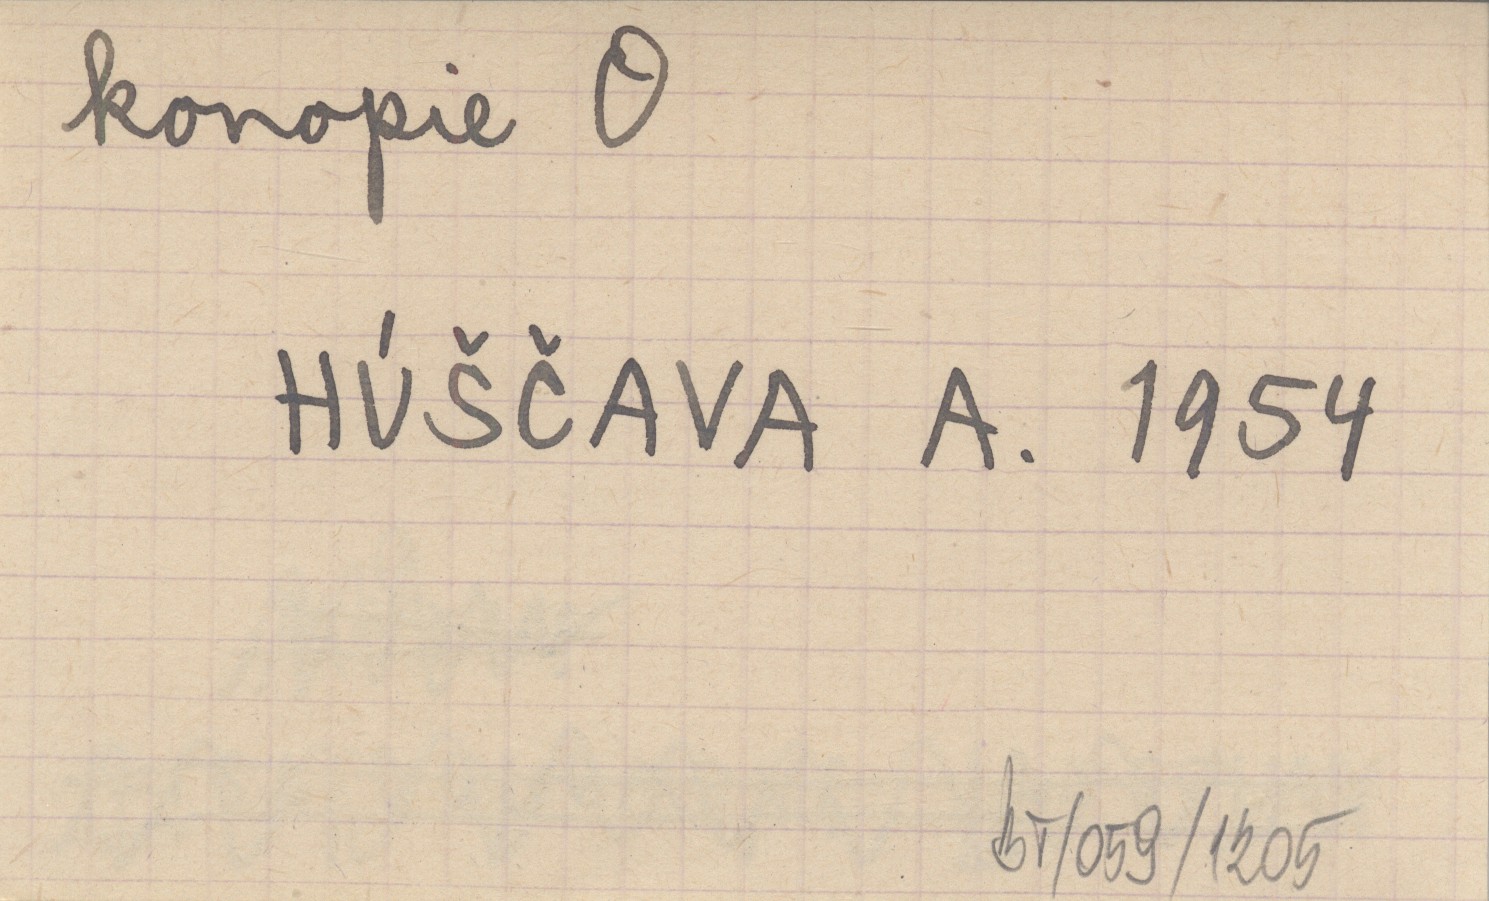 konopie O
HÚŠČAVA A. 1954
BT/059/1205